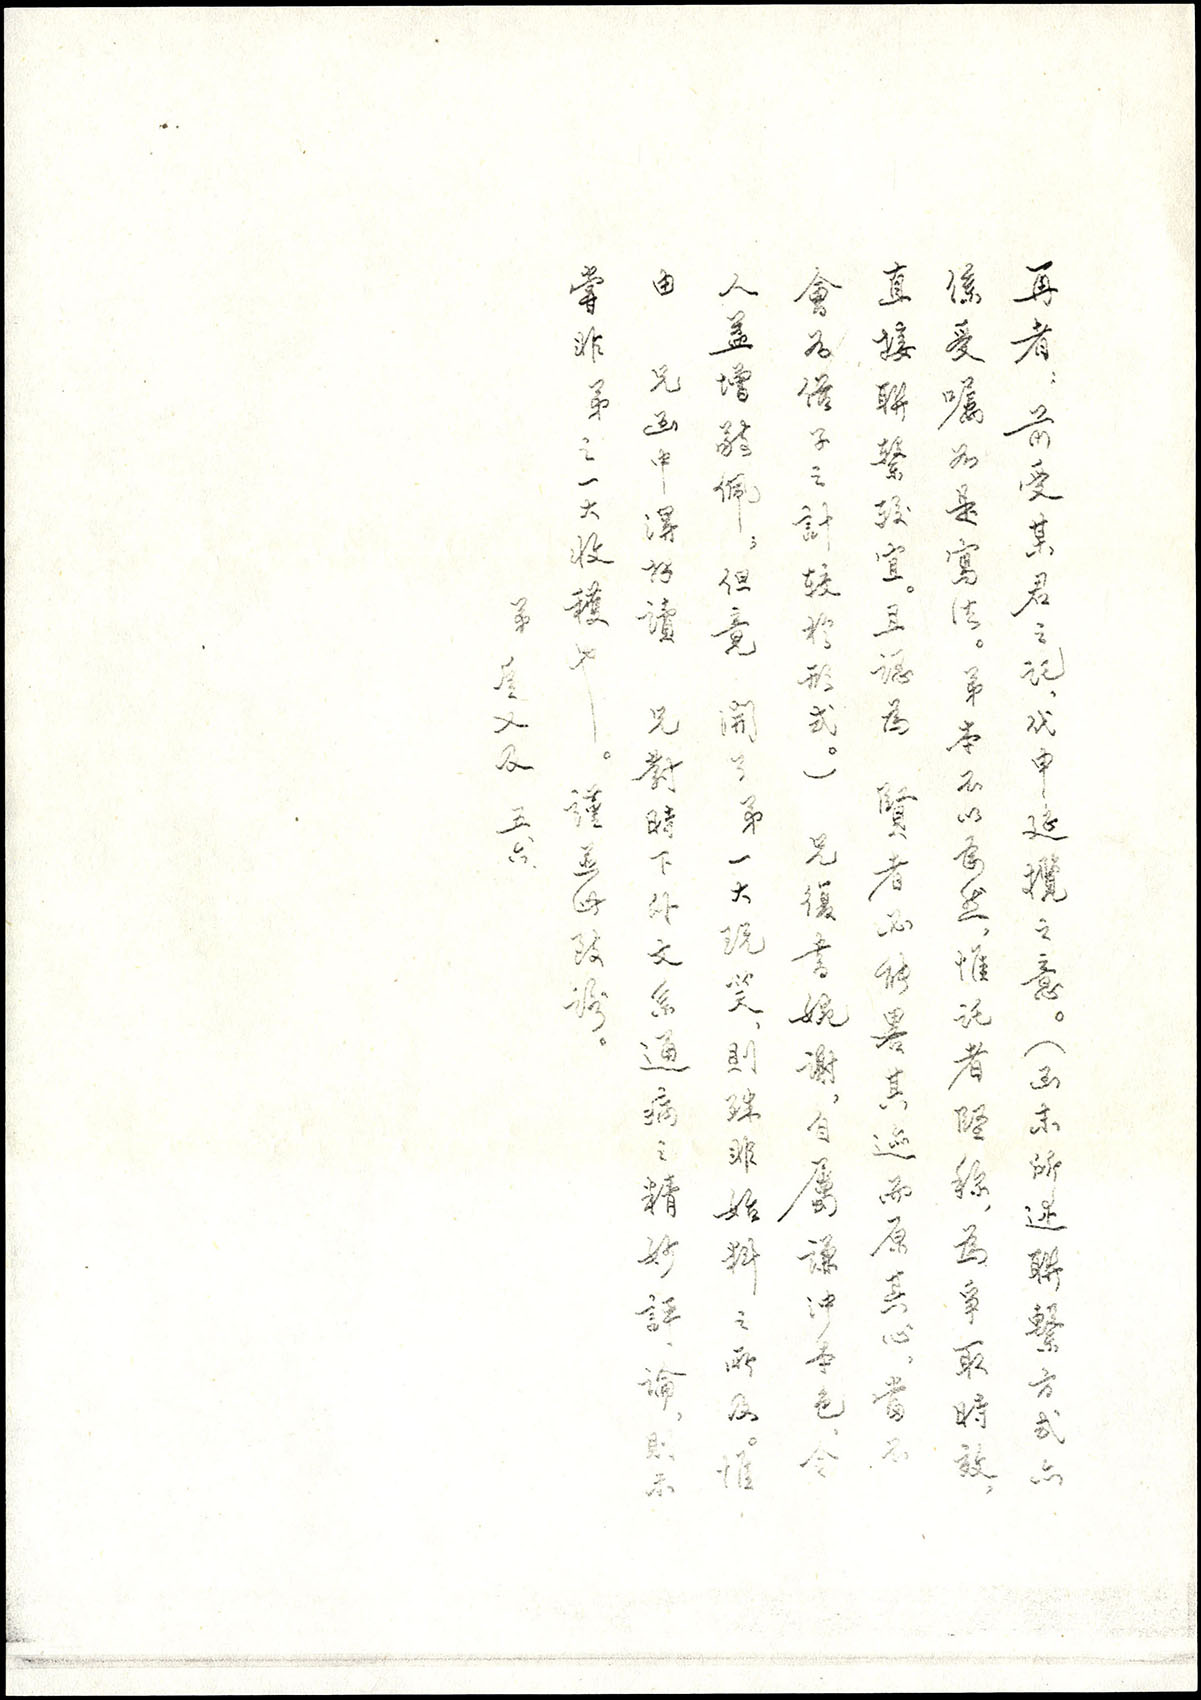 再者：前受某君之託，代申延攬之意。（函末所述聯繫方式亦
係受囑如是寫法。弟本不以為然，惟託者堅稱，為爭取時效，
直接聯繫較宜。且認為　賢者必能畧其迹而原其心，當不
會如俗子之計較於形式。）　兄復書婉謝，自屬謙沖本色，令
人益增敬佩；但竟　開了弟一大玩笑，則殊非始料之所及。惟
由　兄函中得拜讀　兄對時下外文系通病之精妙評論，則亦
嘗非弟之一大收穫也──。謹並此致謝。
弟　又及　五、六、